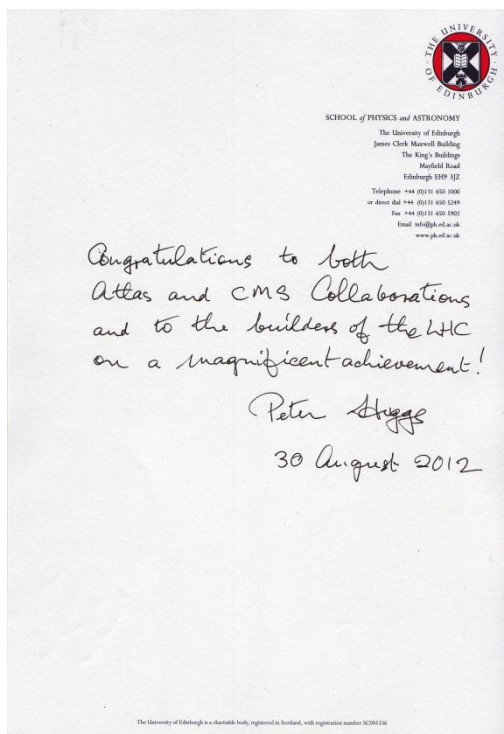 THE UNIVERSITY OF EDINBURGH
SCHOOL of PHYSICS and ASTRONOMY
The University of Edinburgh
James Clerk Maxwell Building
The King's Buildings
Mayfield Road
Edinburgh EH9 3JZ
Telephone +44 (0)131 650 1000
or direct dial +44 (0)131 650 5249
Fax +44 (0)131 650 5902
Email info@ph.ed.ac.uk
www.ph.ed.ac.uk
Congratulations to both
Atlas and CMS Collaborations
and to the builders of the LHC
on a magnificent achievement!
Peter Higgs
30 August 2012
The University of Edinburgh is a charitable body, registered in Scotland, with registration number SC005336